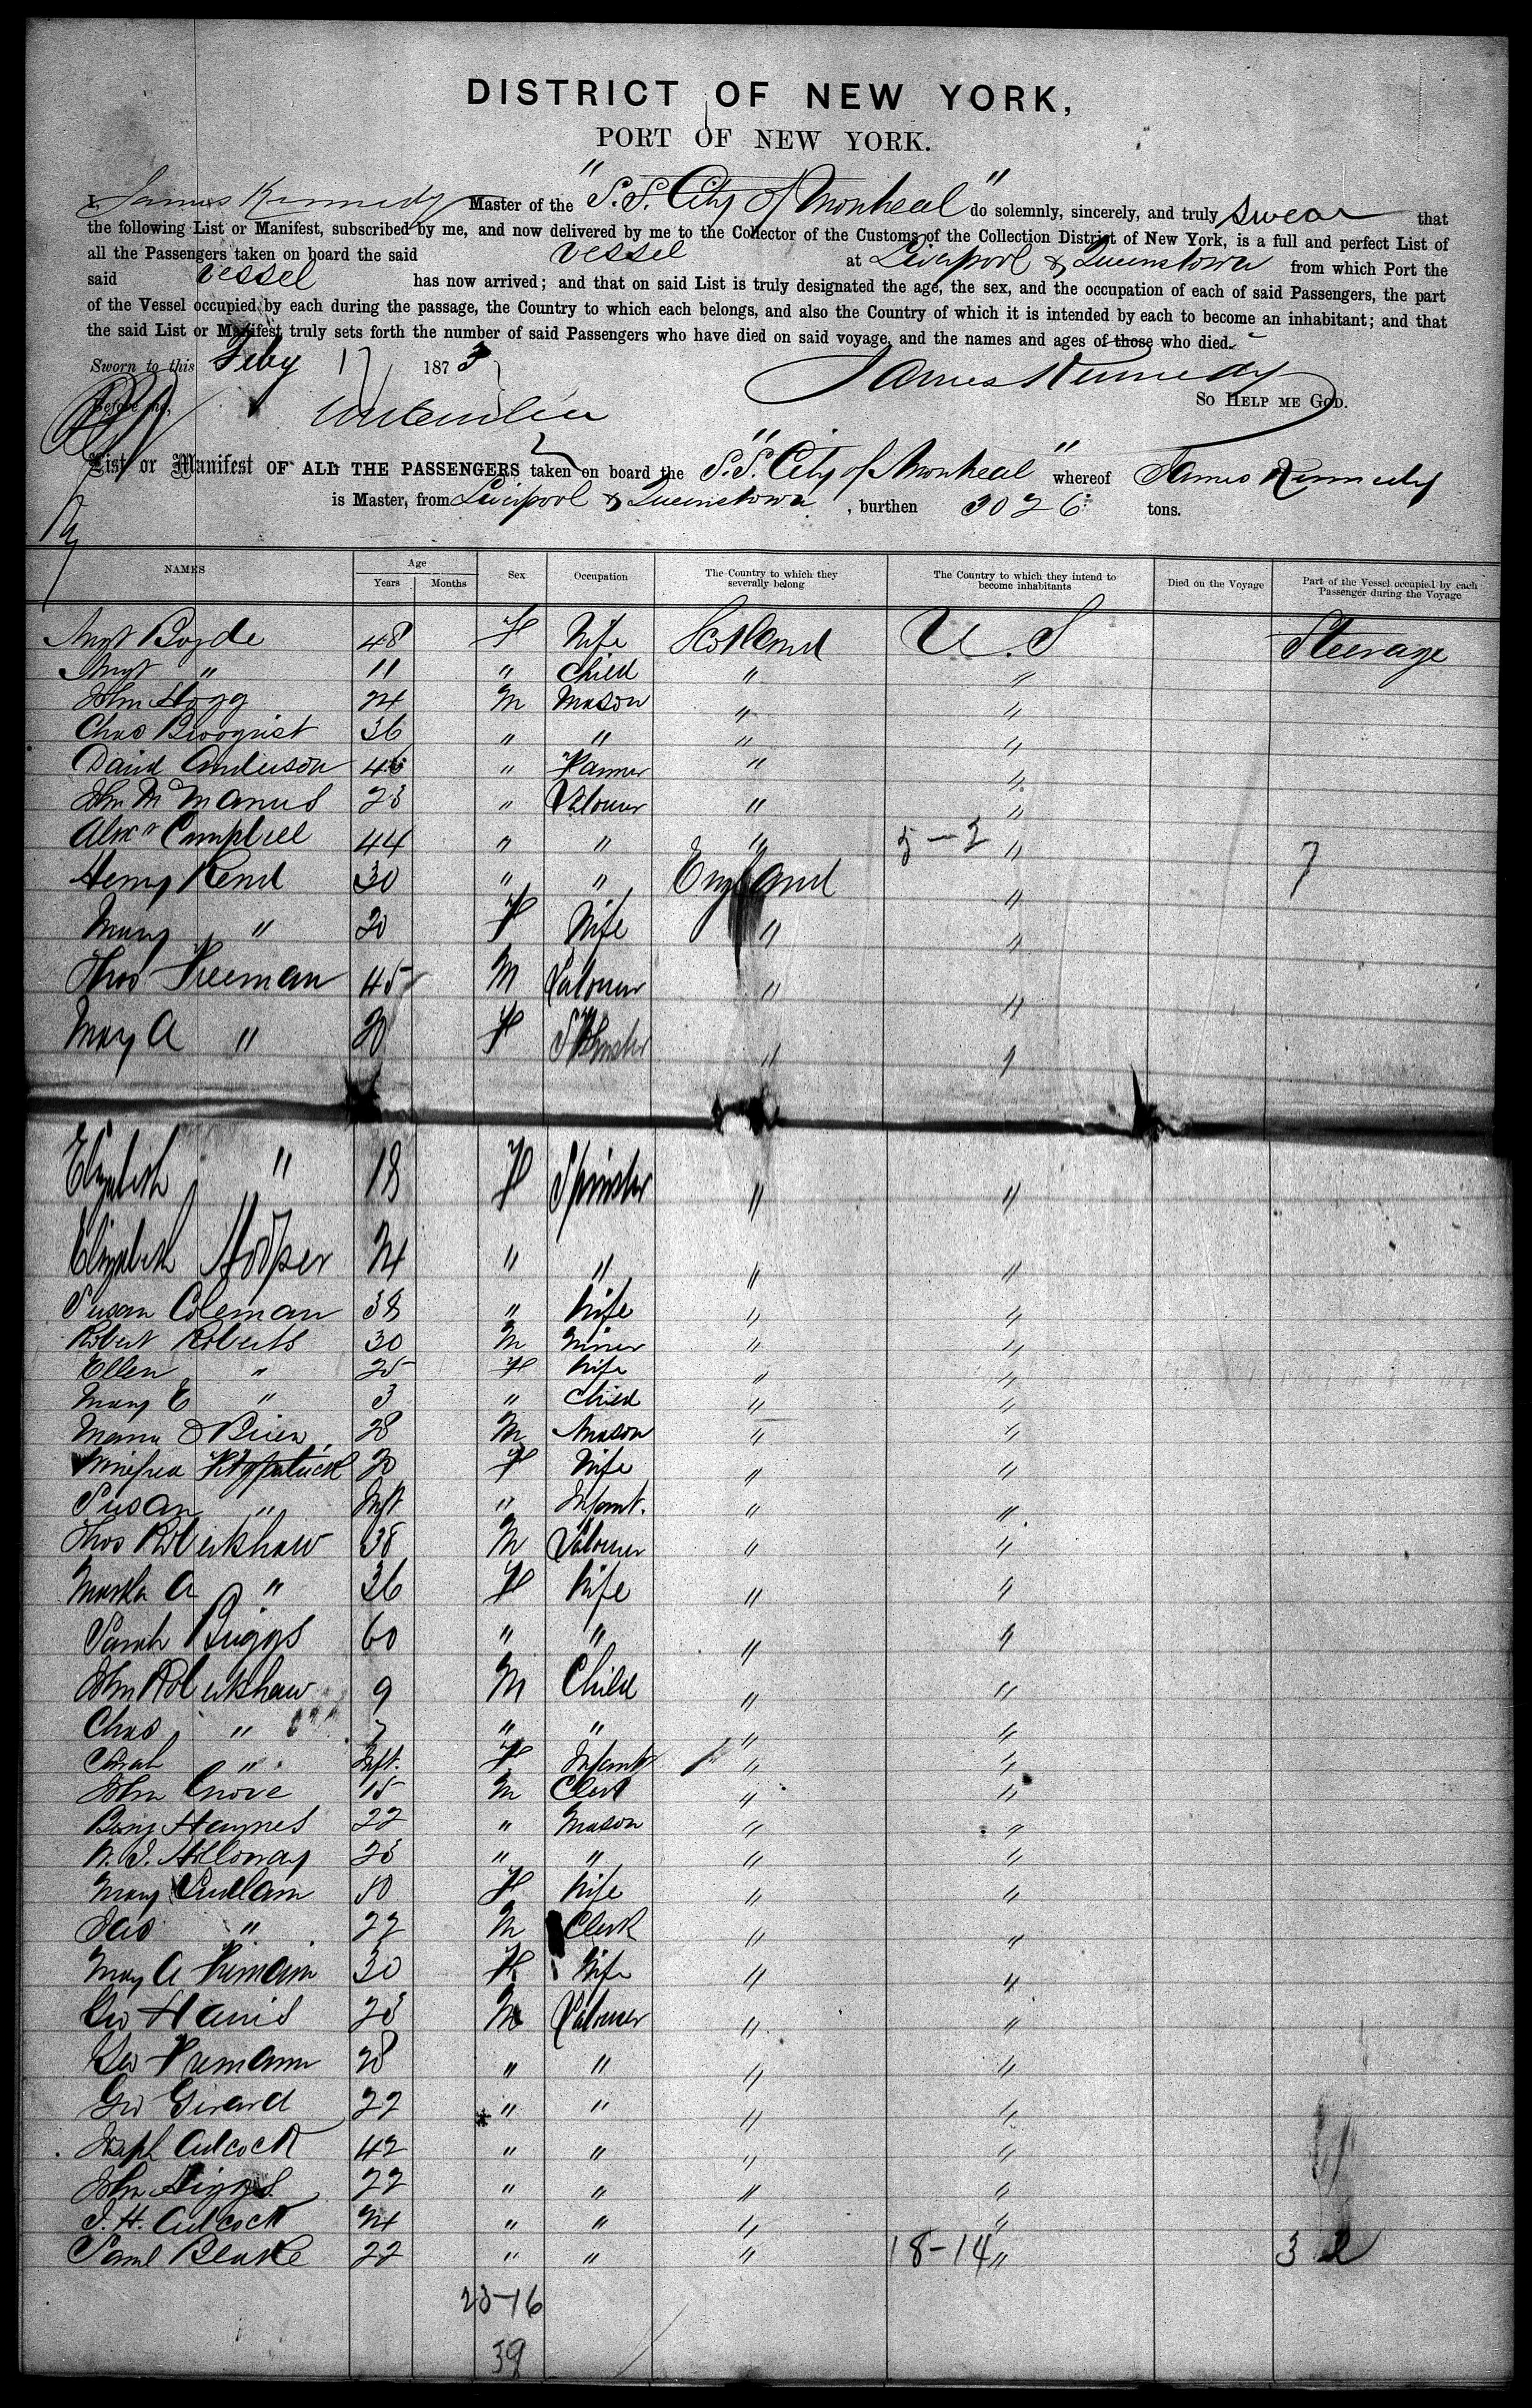 DISTRICT OF NEW YORK,
PORT OF NEW YORK.
I, James Kennedy Master of the "S.S. City of Montreal" do solemnly, sincerely, and truly swear that
the following List or Manifest, subscribed by me, and now delivered by me to the Collector of the Customs of the Collection District of New York, is a full and perfect List of
all the Passengers taken on board the said vessel at Liverpool & Queenstown from which Port the
said vessel has now arrived; and that on said List is truly designated the age, the sex, and the occupation of each of said Passengers, the part
of the Vessel occupied by each during the passage, the Country to which each belongs, and also the Country of which it is intended by each to become an inhabitant; and that
the said List or Manifest truly sets forth the number of said Passengers who have died on said voyage, and the names and ages of those who died.
Sworn to this Feby 17 1873
James Kennedy
Before me,
SO HELP ME GOD.
List or Manifest OF ALL THE PASSENGERS taken on board the "S.S. City of Montreal" whereof James Kennedy
is Master, from Liverpool & Queenstown, burthen 3026 tons.
NAMES Age Years Months Sex Occupation The Country to which they severally belong The Country to which they intend to become inhabitants Died on the Voyage Part of the Vessel occupied by each Passenger during the Voyage
Margt Boyde 48 F Wife Scotland U.S Steerage
Margt " 11 " Child " "
John Hogg 24 M Mason " "
Chas 36 " " " "
David Anderson 46 " Farmer " "
John McManus 23 " Labourer " "
Alexr Campbell 44 " " " 5-2 " 7
Henry Kend 30 " " England "
Mary " 20 F Wife " "
Thos Freeman 45 M Labourer " "
Mary A " 20 F Spinster " "
Elizabeth " 18 F Spinster " "
Elizabeth Hooper 24 " " " "
Susan Coleman 38 " Wife " "
Robert Roberts 30 M Miner " "
Ellen " 25 F Wife " "
Mary E " 3 " Child " "
O'Brien 28 M Mason " "
Winifred Fitzpatrick 20 F Wife " "
Susan " Inft " Infant. " "
Thos Robertshaw 38 M Labourer " "
Martha A " 36 F Wife " "
Sarah Briggs 60 " " " "
John Robertshaw 9 M Child " "
Chas " 7 " " " "
Sarah " Inft. F Infant " "
John Grove 15 M Clerk " "
Benj Haynes 22 " Mason " "
W. J. Holloway 23 " " " "
Mary Ludlam 50 F Wife " "
Jas " 22 M Clerk " "
Mary A 30 F Wife " "
Geo Harris 23 M Labourer " "
Geo 28 " " " "
Geo Girard 22 " " " "
Joseph Adcock 42 " " " "
John Higgs 22 " " " "
J. H. Adcock 24 " " " "
Saml Blake 22 " " " 18-14 " 32
23-16
39